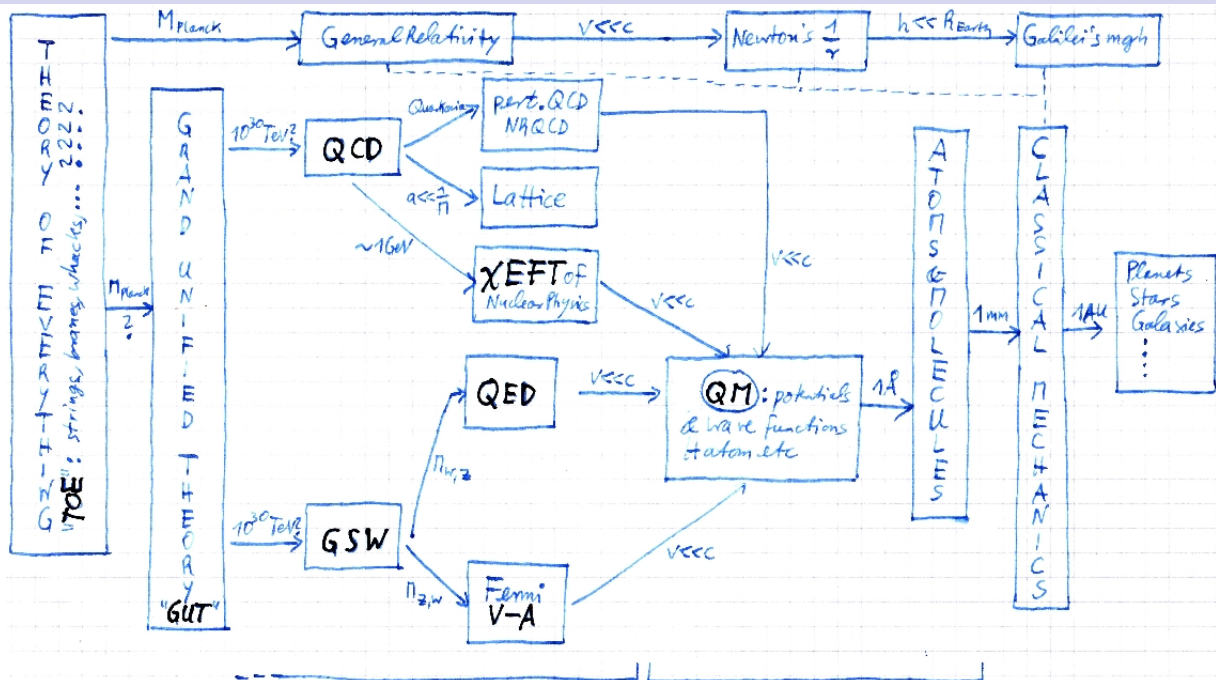 THEORY OF EVERYTHING
"TOE": strings, branes, whacks, ... ????
M_Planck
General Relativity
v<<c
Newton's 1/r
h << R_Earth
Galilei's mgh
M_Planck
?
GRAND UNIFIED THEORY
"GUT"
10^30 TeV?
QCD
Quarkonia
pert. QCD
NRQCD
a<<1/M
Lattice
~1GeV
χEFT of
Nuclear Physics
v<<c
v<<c
QED
v<<c
QM: potentials
& wave functions
H atom etc
1Å
ATOMS & MOLECULES
1mm
CLASSICAL MECHANICS
1AU
Planets
Stars
Galaxies
10^30 TeV?
GSW
M_W,Z
M_Z,W
Fermi
V-A
v<<c